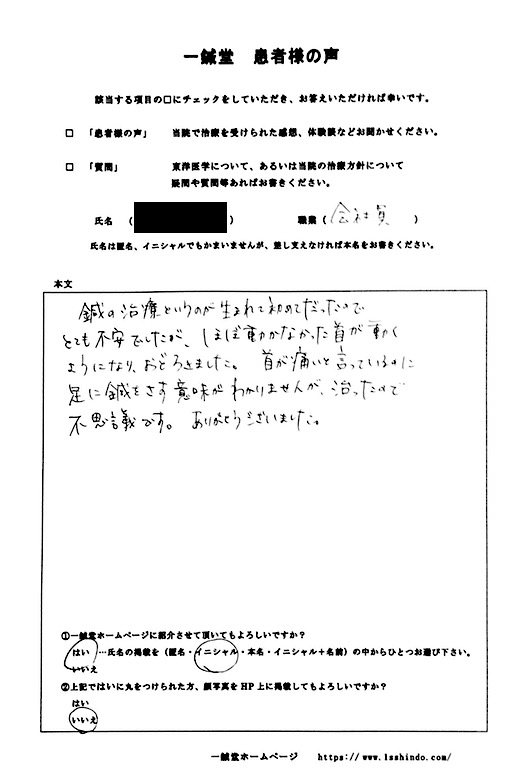 一鍼堂 患者様の声
該当する項目の□にチェックをしていただき、お答えいただければ幸いです。
□ 「患者様の声」 当院で治療を受けられた感想、体験談などお聞かせください。
□ 「質問」 東洋医学について、あるいは当院の治療方針について
疑問や質問等あればお書きください。
氏名 ( ) 職業 ( 会社員 )
氏名は匿名、イニシャルでもかまいませんが、差し支えなければ本名をお書きください。
本文
鍼の治療というのが生まれて初めてだったので
とても不安でしたが、ほぼ動かなかった首が動く
ようになり、おどろきました。 首が痛いと言っているのに
足に鍼をさす意味がわかりませんが、治ったので
不思議です。 ありがとうございました。
①一鍼堂ホームページに紹介させて頂いてもよろしいですか？
はい…氏名の掲載を（匿名・イニシャル・本名・イニシャル＋名前）の中からひとつお選び下さい。
いいえ
②上記ではいに丸をつけられた方、顔写真をHP上に掲載してもよろしいですか？
はい
いいえ
一鍼堂ホームページ https://www.1sshindo.com/